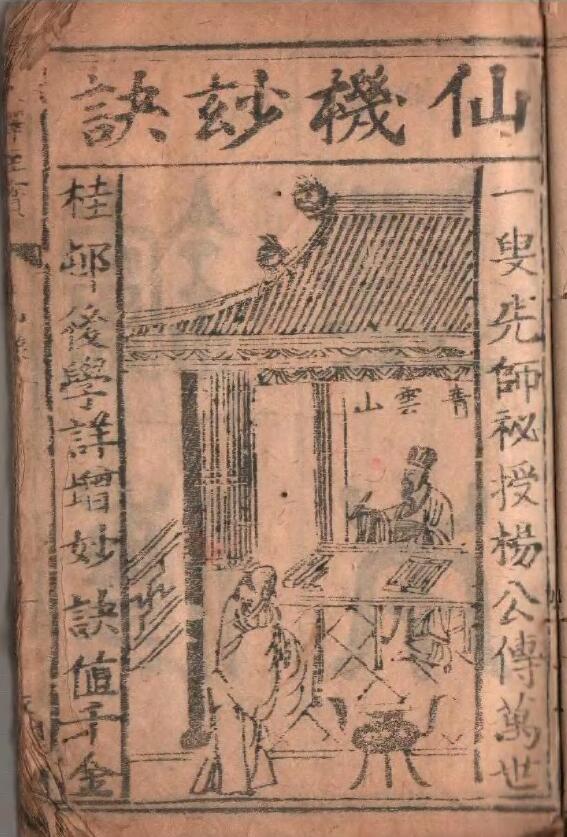 仙機玅訣
一叟先師祕授楊公傳萬世
青雲山
桂邨後學詳增妙訣值千金